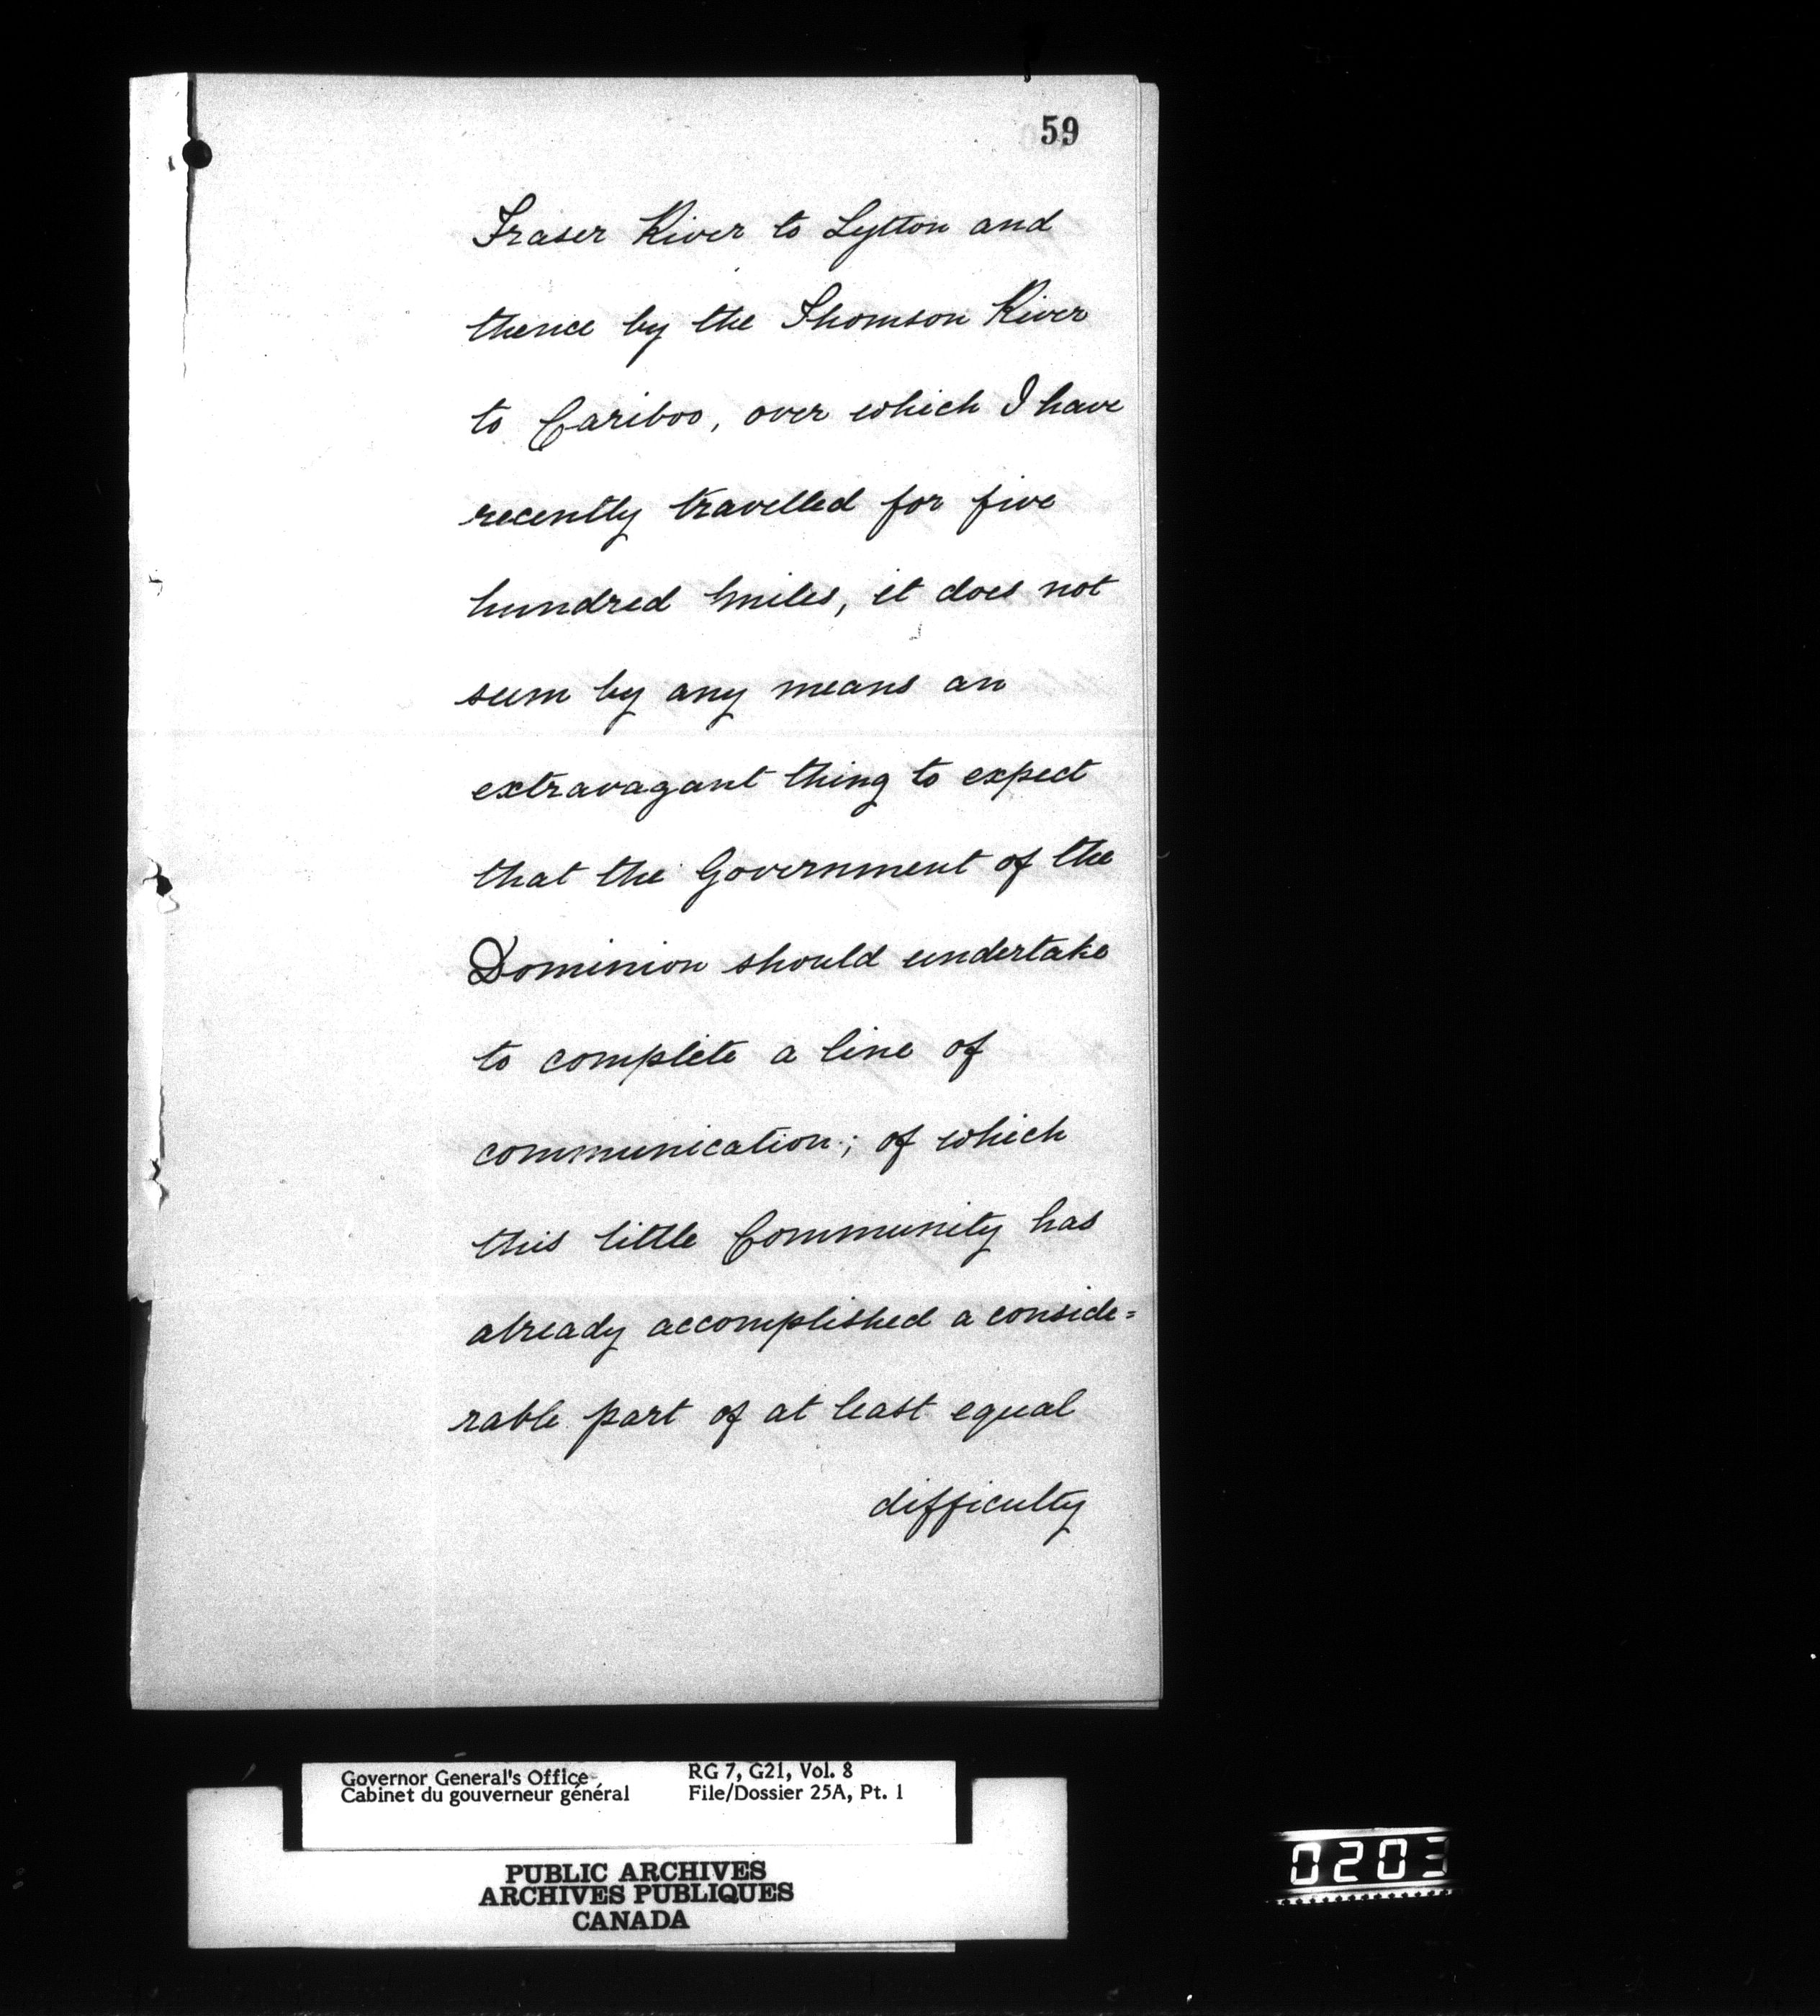 59
Fraser River to Lytton and
thence by the Thomson River
to Cariboo, over which I have
recently travelled for five
hundred miles, it does not
seem by any means an
extravagant thing to expect
that the Government of the
Dominion should undertake
to complete a line of
communication; of which
this little Community has
already accomplished a conside=
rable part of at least equal
difficulty
Governor General's Office RG 7, G21, Vol. 8
Cabinet du gouverneur général File/Dossier 25A, Pt. 1
PUBLIC ARCHIVES
ARCHIVES PUBLIQUES
CANADA
0203